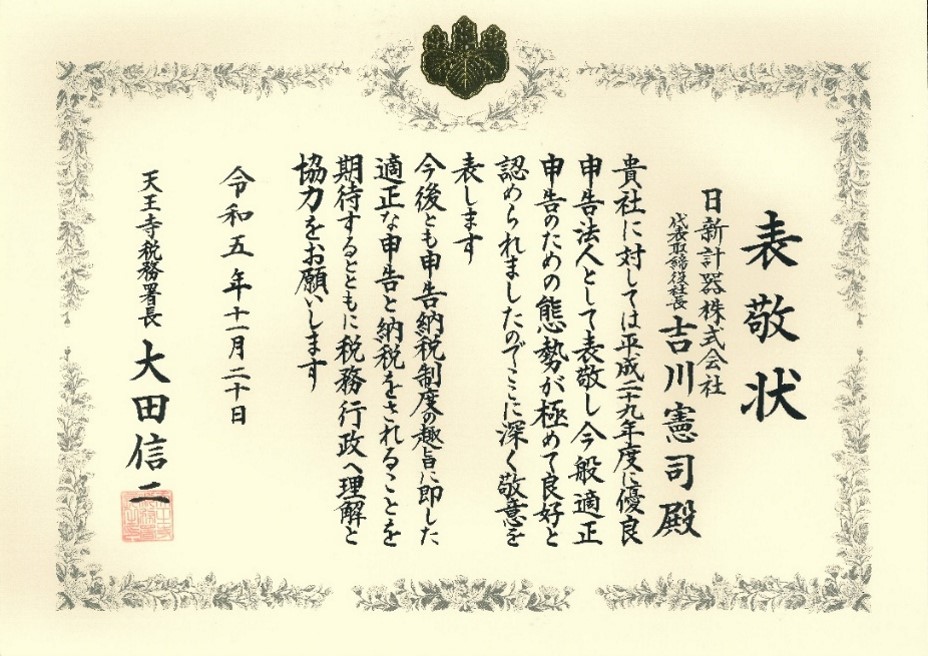 表敬状
日新計器株式会社
代表取締役社長 吉川憲司殿
貴社に対しては平成二十九年度に優良
申告法人として表敬し今般適正
申告のための態勢が極めて良好と
認められましたのでここに深く敬意を
表します
今後とも申告納税制度の趣旨に即した
適正な申告と納税をされることを
期待するとともに税務行政へ理解と
協力をお願いします
令和五年十一月二十日
天王寺税務署長 大田信二